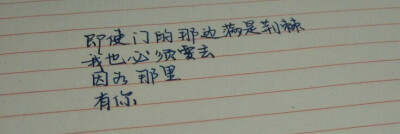 即使门的那边满是荆棘
我也必须要去
因为那里
有你